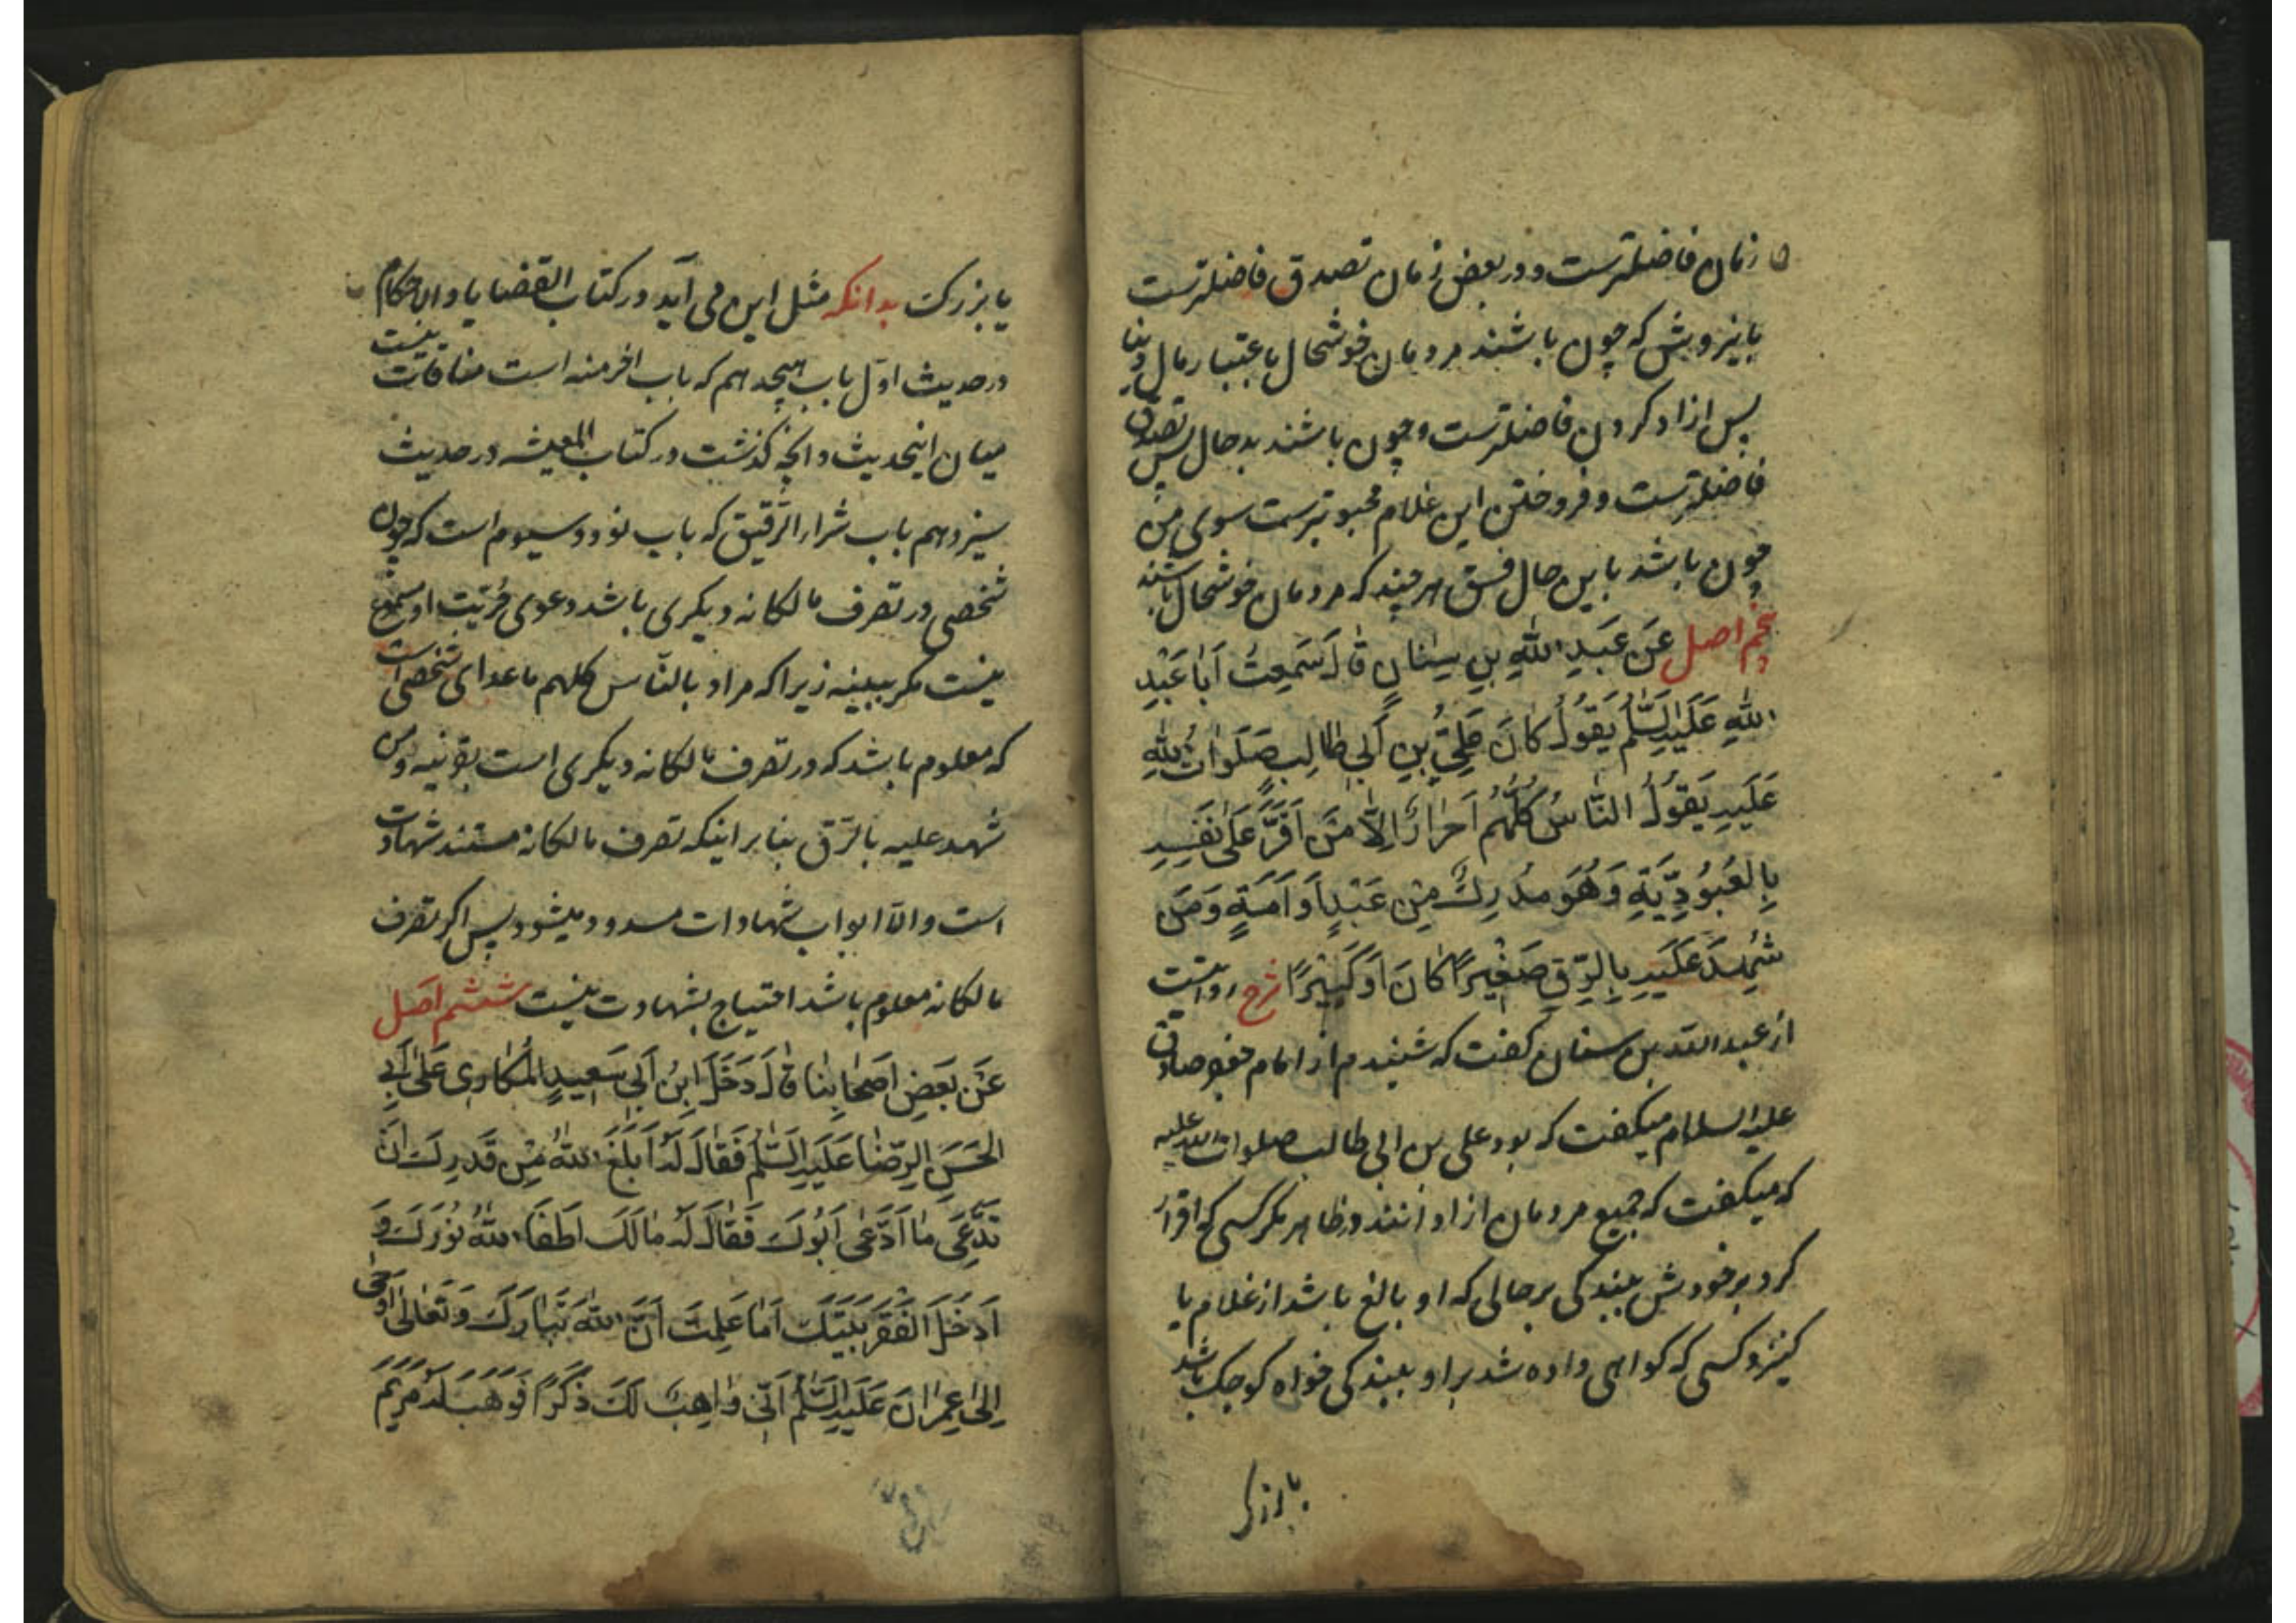 زمان فاضلترست و در بعض زمان تصدق فاضلترست
باینروش که چون باشند مردمان خوشحال باعتبار مال دنیا
پس ازاد کردن فاضلترست و چون باشند بدحال پس تصدق
فاضلترست و فروختن این غلام محبوبترست سوی من
چون باشد باین حال فسق هر چند که مردمان خوشحال باشند
پنجم اصل عَنْ عَبْدِ اللّٰهِ بْنِ سِنَانٍ قَالَ سَمِعْتُ اَبَا عَبْدِ
اللّٰهِ عَلَیْهِ السَّلٰمُ یَقُولُ کَانَ عَلِیُّ بْنُ اَبِی طَالِبٍ صَلَوَاتُ اللّٰهِ
عَلَیْهِ یَقُولُ النَّاسُ کُلُّهُمْ اَحْرَارٌ اِلَّا مَنْ اَقَرَّ عَلَی نَفْسِهِ
بِالْعُبُودِیَّةِ وَهُوَ مُدْرِکٌ مِنْ عَبْدٍ اَوْ اَمَةٍ وَمَنْ
شُهِدَ عَلَیْهِ بِالرِّقِّ صَغِیْرًا کَانَ اَوْ کَبِیْرًا شرح روایتست
از عبد الله بن سنان گفت که شنیدم از امام جعفر صادق
علیه السلام میکفت که بود علی بن ابی طالب صلوات الله علیه
که میکفت که جمیع مردمان ازادانند در ظاهر مکر کسی که اقرار
کرد بر خودش ببندکی بر حالی که او بالغ باشد از غلام یا
کنیز و کسی که کواهی داده شد بر او ببندکی خواه کوچک باشد
یا بزرک
یا بزرکت بدانکه مثل این می آید در کتاب القضایا والاحکام
در حدیث اوّل باب هیجدهم که باب اخر منه است منافات نیست
میان اینحدیث و انچه کذشت در کتاب المعیشه در حدیث
سیزدهم باب شراء الرّقیق که باب نود و سیوم است که چون
شخصی در تصرف مالکانه دیکری باشد دعوی حُرّیّت او مسموع
نیست مکر ببیّنه زیرا که مراد بالنّاس کلهم ماعدای شخصی است
که معلوم باشد که در تصرف مالکانه دیکری است بقرینه ومن
شهد علیه بالرّق بنا بر اینکه تصرف مالکانه مستند شهادت
است والّا ابواب شهادات مسدود میشود پس اکر تصرف
مالکانه معلوم باشد احتیاج بشهادت نیست ششم اصل
عَنْ بَعْضِ اَصْحَابِنَا قَالَ دَخَلَ ابْنُ اَبِی سَعِیدٍ الْمُکَارِی عَلٰی اَبِی
الْحَسَنِ الرِّضَا عَلَیْهِ السَّلٰمُ فَقَالَ لَهُ اَبَلَغَ اللّٰهُ مِنْ قَدْرِکَ اَنْ
تَدَّعِیَ مَا ادَّعٰی اَبُوکَ فَقَالَ لَهُ مَا لَکَ اَطْفَاَ اللّٰهُ نُورَکَ وَ
اَدْخَلَ الْفَقْرَ بَیْتَکَ اَمَا عَلِمْتَ اَنَّ اللّٰهَ تَبَارَکَ وَتَعَالٰی اَوْحٰی
اِلٰی عِمْرَانَ عَلَیْهِ السَّلٰمُ اَنِّی وَاهِبٌ لَکَ ذَکَرًا فَوَهَبَ لَهُ مَرْیَمَ